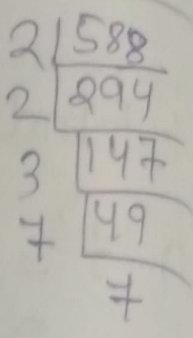 2 588
2 294
3 147
7 49
7